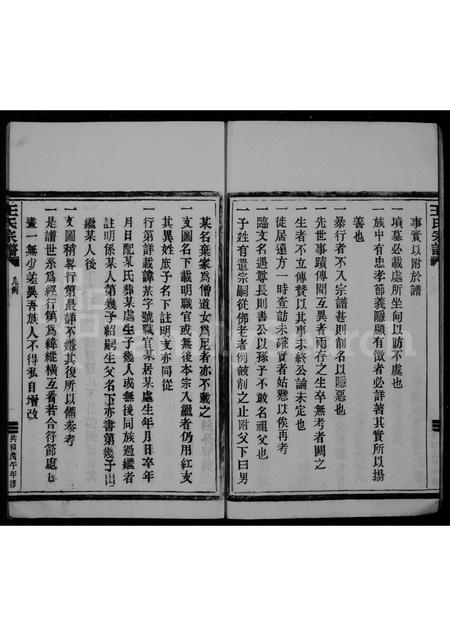 事實以附於譜
一墳墓必載處所坐向以訪不虞也
一族中有忠孝節義隱顯有徵者必詳著其實所以揚
善也
一暴行者不入宗譜甚則削名以隱惡也
一先世事蹟傳聞互異者兩存之生卒無考者闕之
一生者不立傳贊以其事未終公論未定也
一徙居遠方一時查訪未確實者姑懸以俟再考
一臨文名遇尊長則書公以孫子不敢名祖父也
一子姓有還宗嗣從佛老者例該削之止附父下曰男
某名棄家為僧道女為尼者亦不載之
一支圖名下載明職官或無後本宗入繼者仍用紅支
其異姓庶子名下註明支亦同從
一行第詳載諱某字號職官某居某處生年月日卒年
月日配某氏葬某處生子幾人或無後同族過繼者
註明係某人第幾子紹嗣生父名下亦書第幾子出
繼某人後
一支圖稍畧行第最詳不嫌其復所以備參考
一是譜世系為經行第為緯縱橫互看若合符節處也
畫一無少差異吾族人不得私自增改
王氏宗譜
凡例
一
共和戊午年修